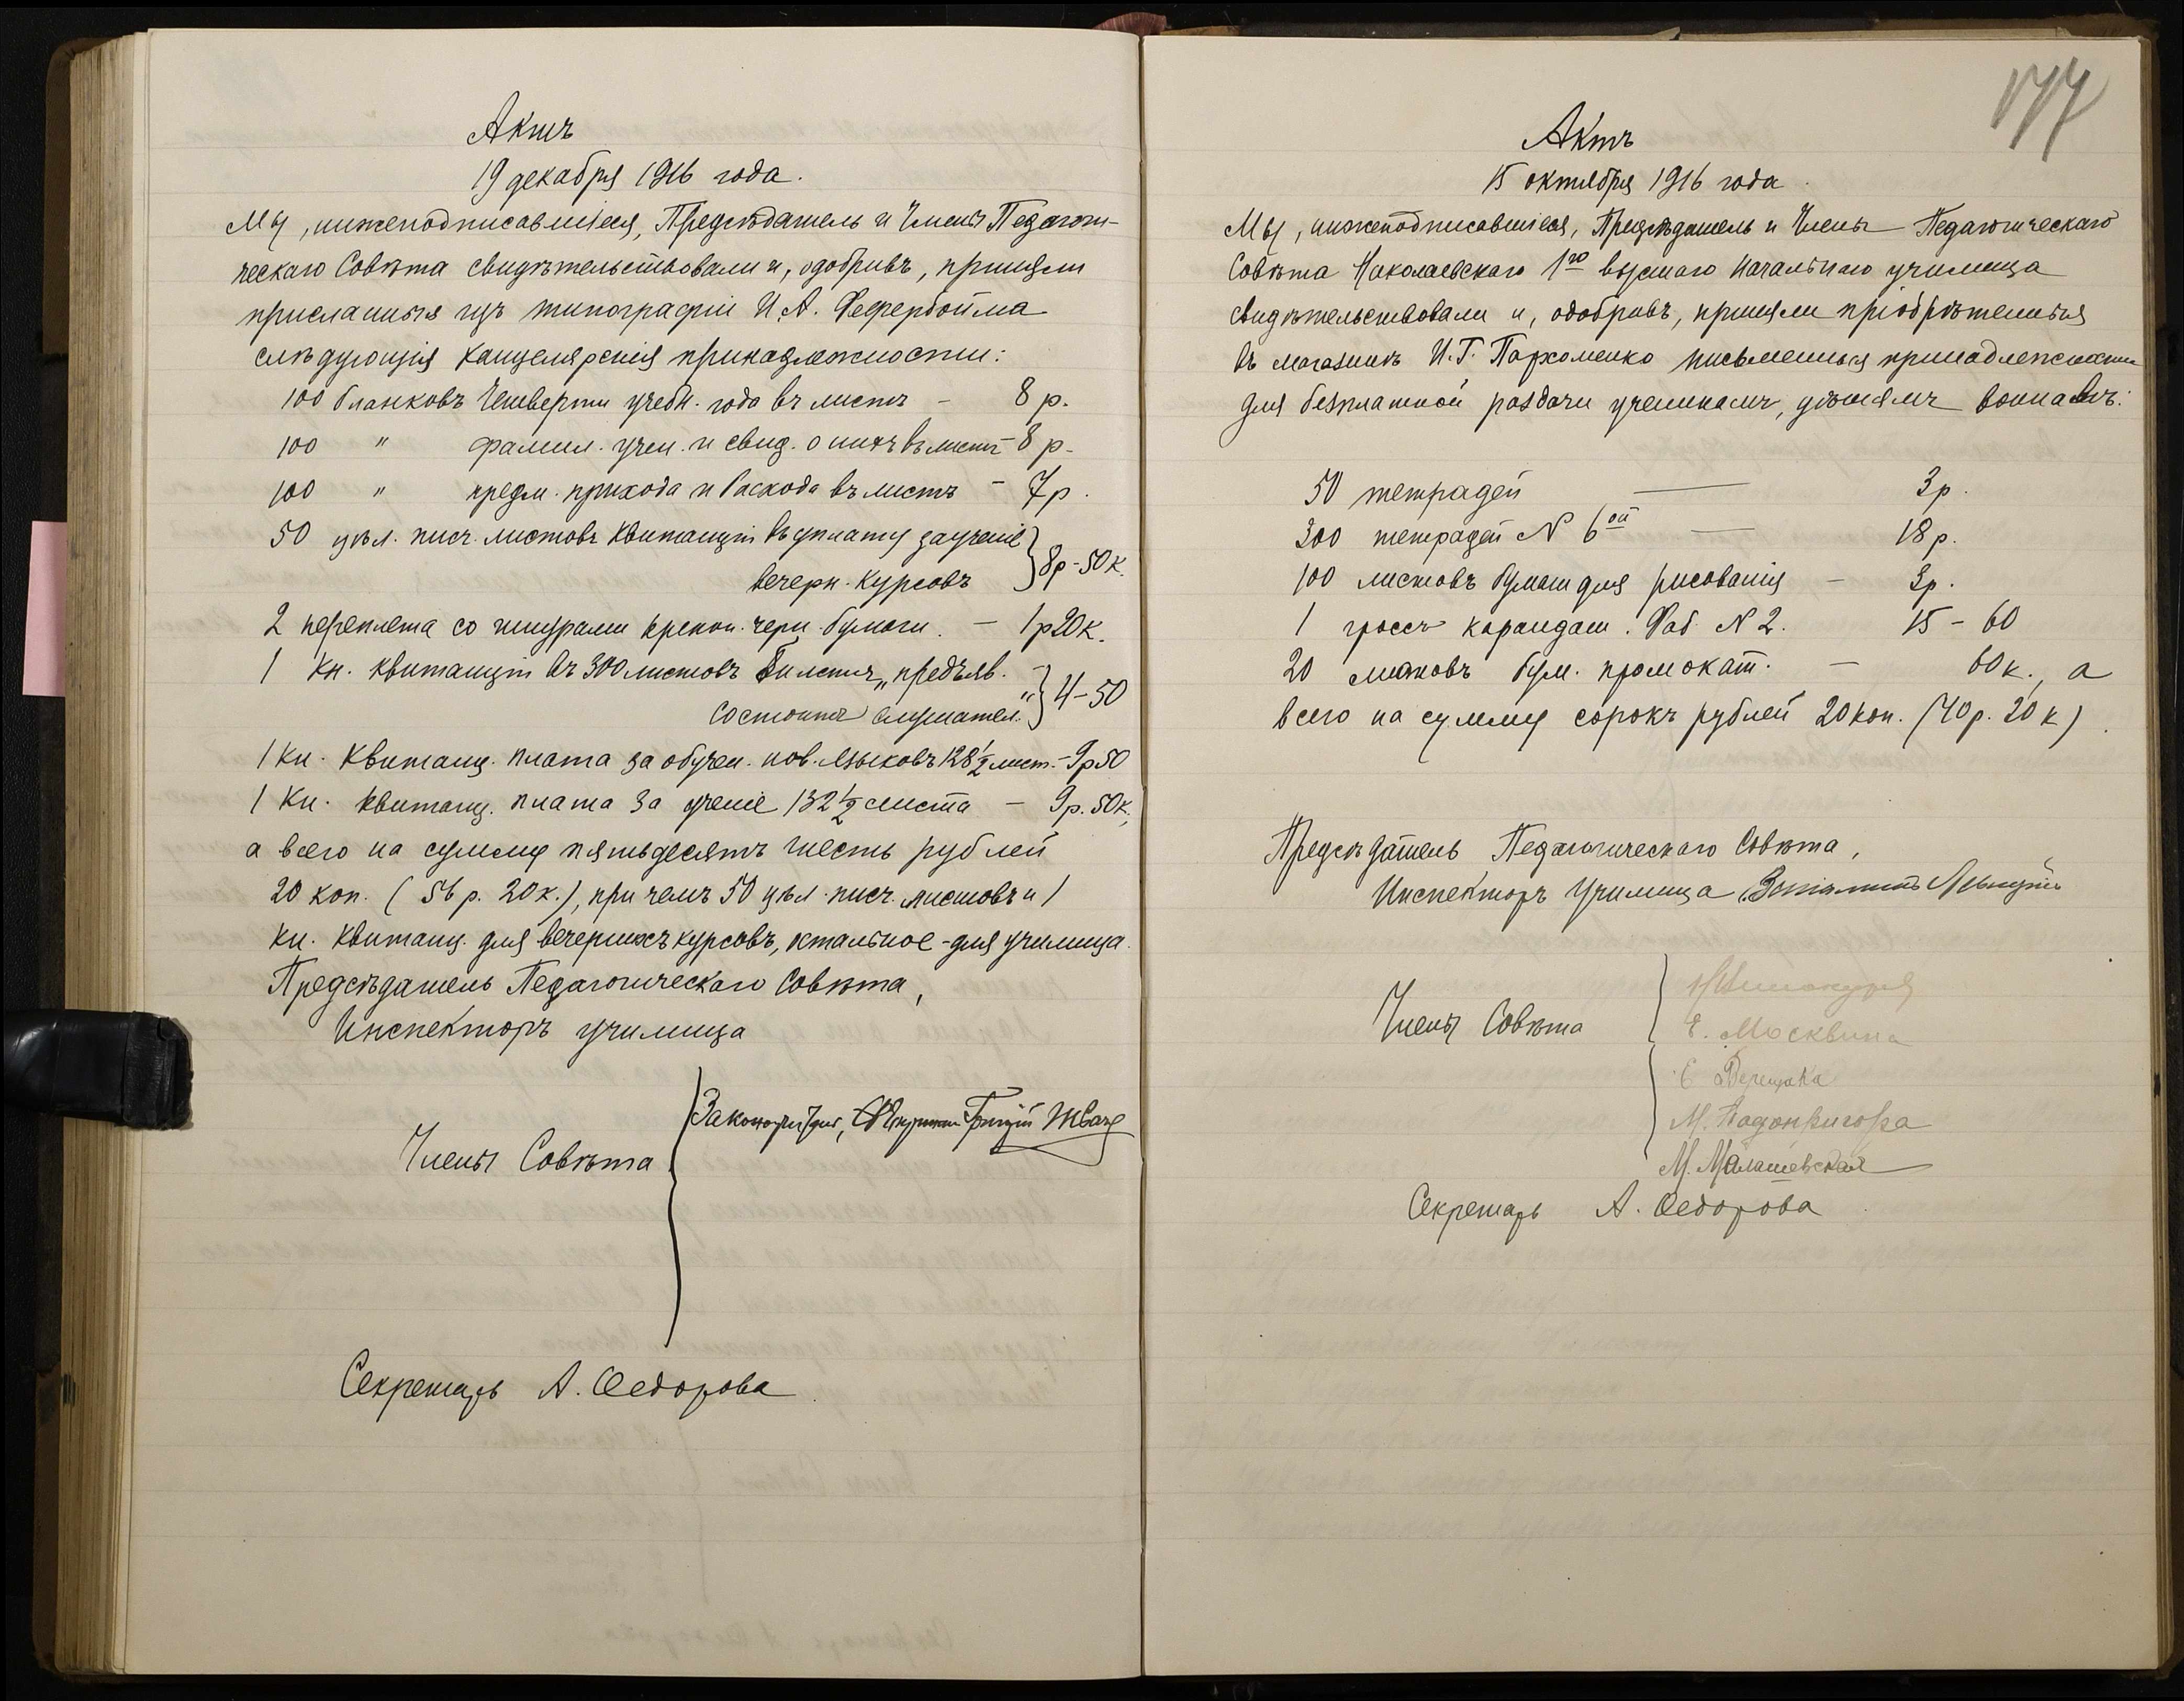 Актъ
19 декабря 1916 года.
Мы, нижеподписавшіеся, Предсѣдатель и Члены Педагоги-
ческаго Совѣта свидѣтельствовали и, одобривъ, приняли
присланныя изъ типографіи И. А. Фефербойма
слѣдующія канцелярскія принадлежности:
100 бланковъ Четверти учебн. года въ листъ - 8 р.
100 " фамил. учен. и свид. о нихъ въ листъ - 8 р.
100 " предм. прихода и расхода въ листъ - 7 р.
50 цѣл. писч. листовъ квитанцій въ уплату за ученіе
вечерн. курсовъ } 8р-50к.
2 переплета со шнурами черн. бумаги. - 1р20к.
1 кн. квитанцій въ 300 листовъ "предъяв.
состоитъ слушател." } 4-50
1 кн. квитанц. плата за обучен. нов. языковъ 128 1/2 лист. - 9р50
1 кн. квитанц. плата за ученіе 132 1/2 листа - 9р. 50к.,
а всего на сумму пятьдесятъ шесть рублей
20 коп. (56 р. 20 к.), при чемъ 50 цѣл. писч. листовъ и 1
кн. квитанц. для вечернихъ курсовъ, остальное - для училища.
Предсѣдатель Педагогическаго Совѣта,
Инспекторъ училища
Законоучитель,
Члены Совѣта
Секретарь А. Ѳедорова.
177
Актъ
15 октября 1916 года.
Мы, нижеподписавшіеся, Предсѣдатель и Члены Педагогическаго
Совѣта Николаевскаго 1го высшаго начальнаго училища
свидѣтельствовали и, одобривъ, приняли пріобрѣтенныя
въ магазинѣ И. Г. Пархоменко письменныя принадлежности
для безплатной раздачи ученикамъ, дѣтямъ воиновъ:
50 тетрадей — 3 р.
300 тетрадей N 6ой — 18 р.
100 листовъ бумаги для рисованія - 3 р.
1 гроссъ карандаш. Фаб. N 2. 15 - 60
20 листовъ бум. промокат. - 60 к., а
всего на сумму сорокъ рублей 20 коп. (40 р. 20 к).
Предсѣдатель Педагогическаго Совѣта,
Инспекторъ Училища
Члены Совѣта
Е. Москвина
Е. Верещака
М. Подопригора
М. Малашевская
Секретарь А. Ѳедорова